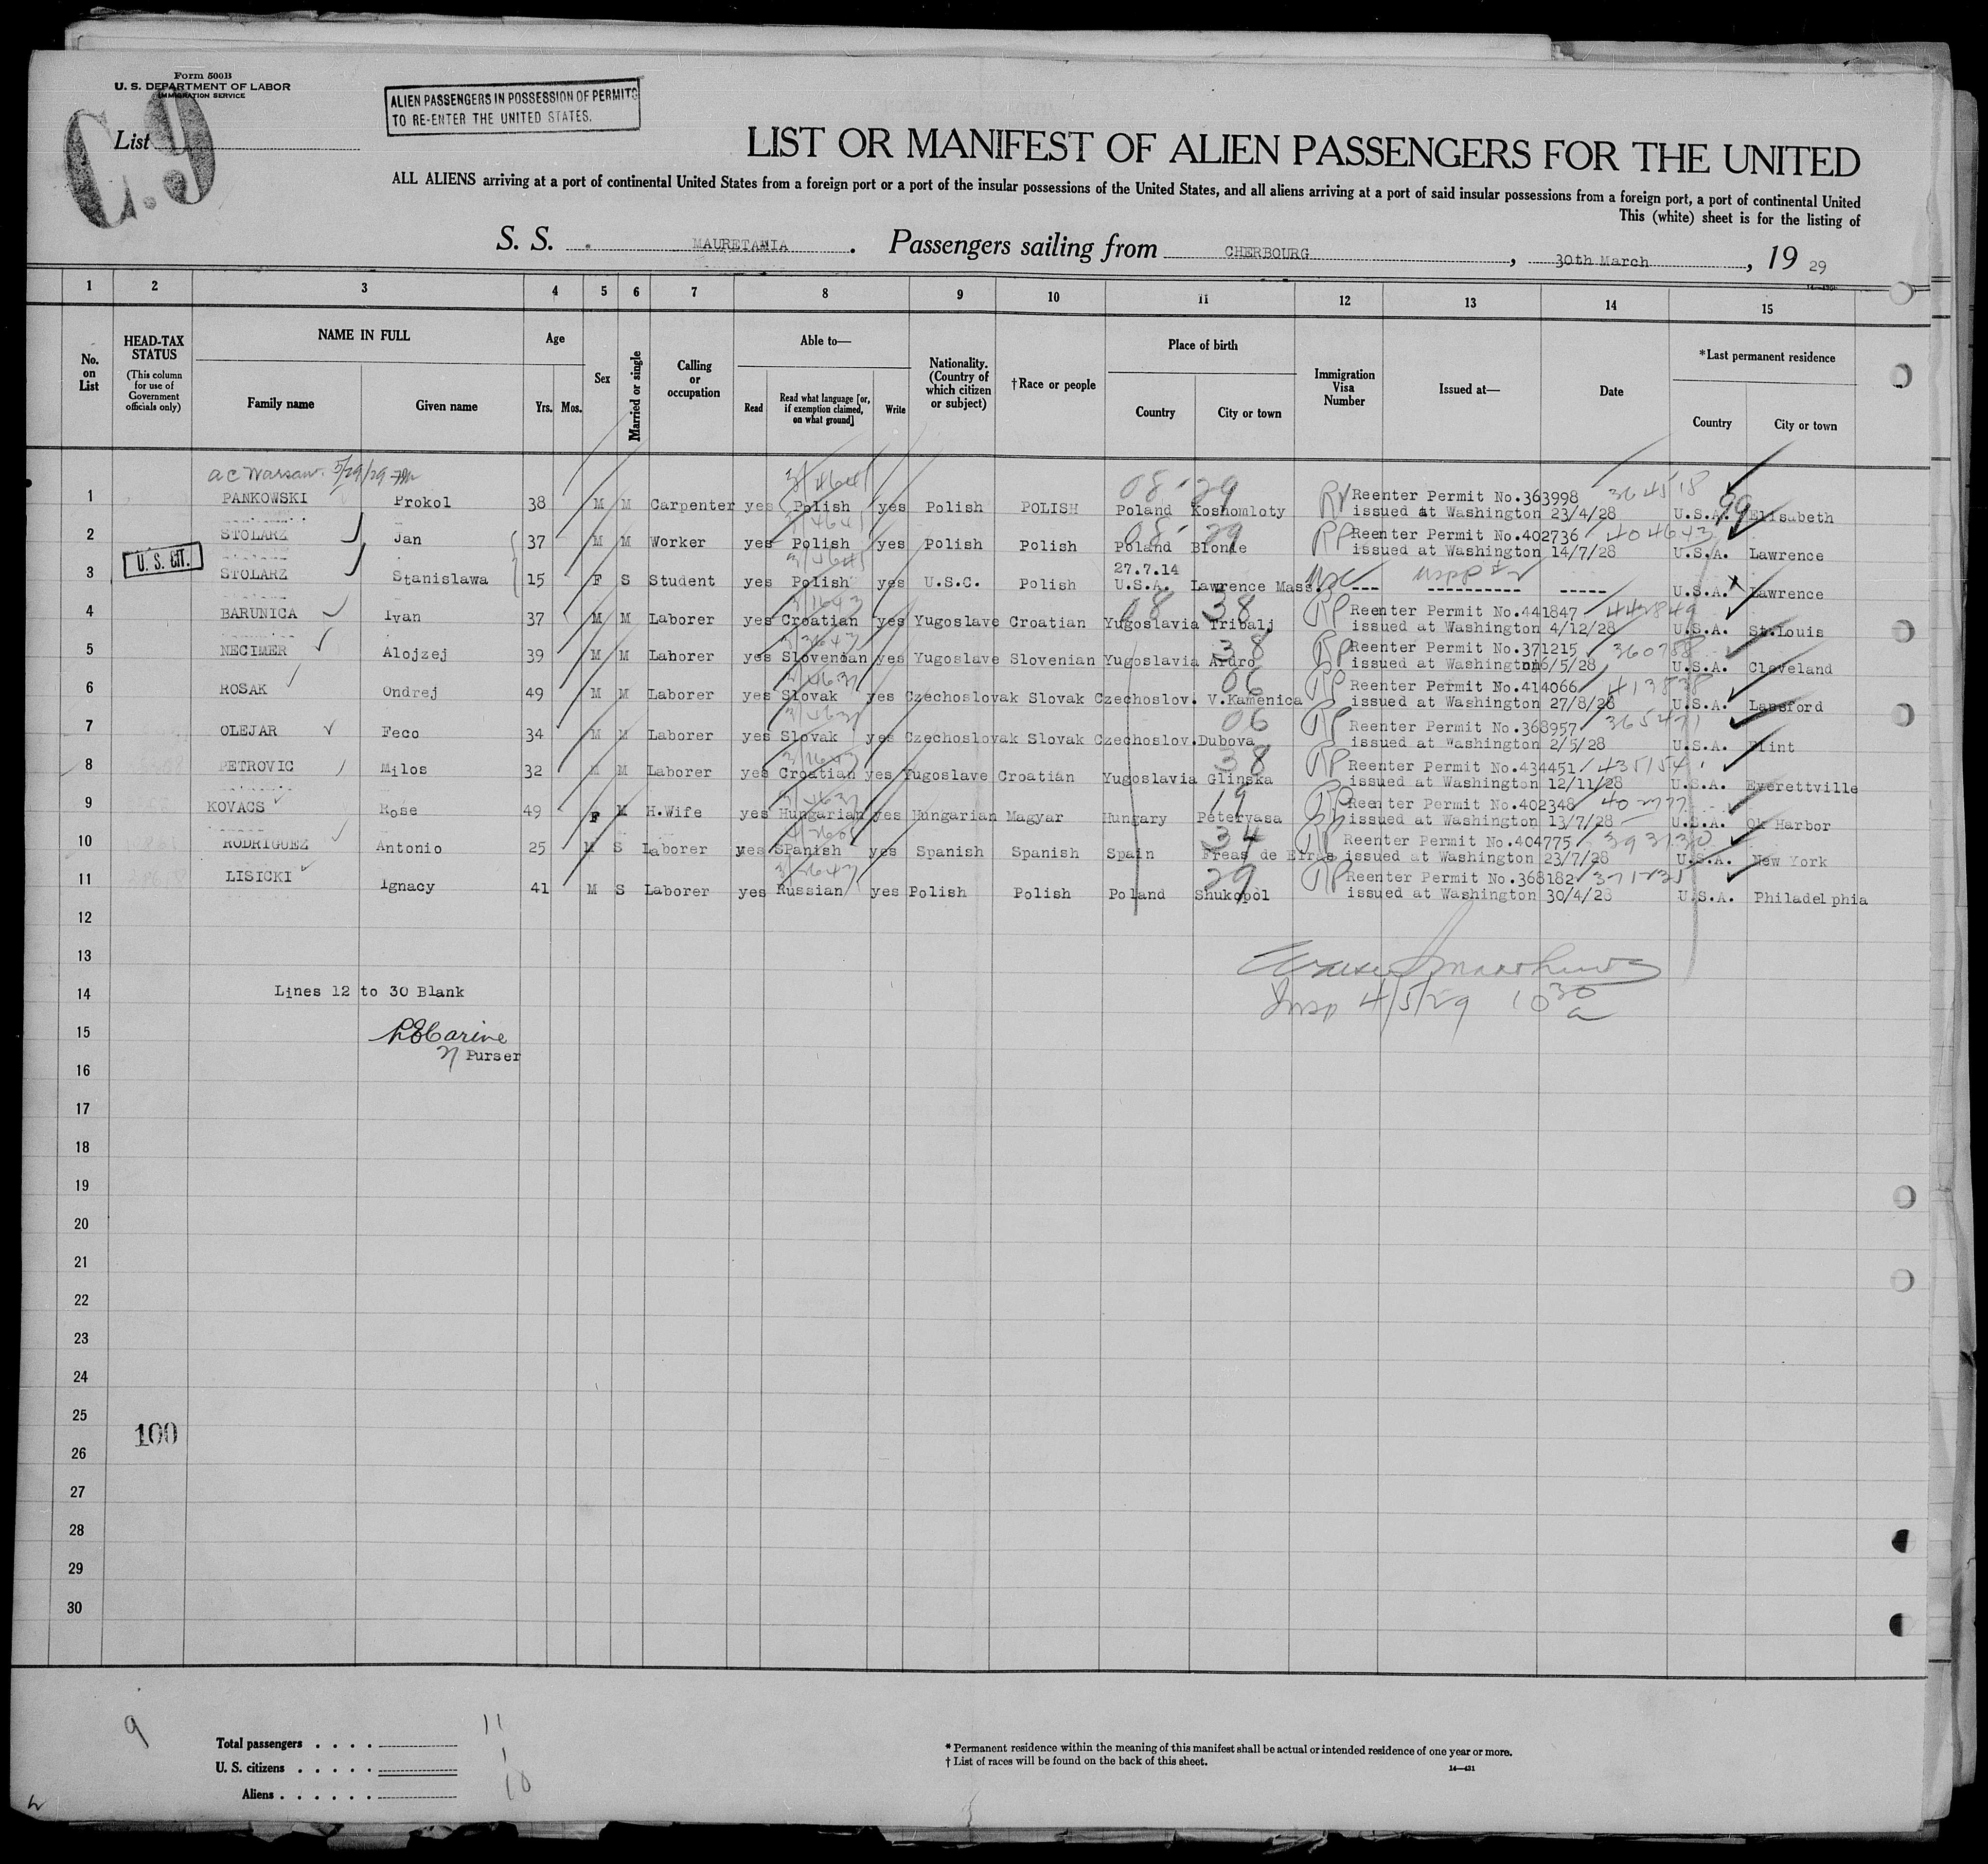 Form 500B
U. S. DEPARTMENT OF LABOR
IMMIGRATION SERVICE
C.9
List
ALIEN PASSENGERS IN POSSESSION OF PERMITS
TO RE-ENTER THE UNITED STATES.
LIST OR MANIFEST OF ALIEN PASSENGERS FOR THE UNITED
ALL ALIENS arriving at a port of continental United States from a foreign port or a port of the insular possessions of the United States, and all aliens arriving at a port of said insular possessions from a foreign port, a port of continental United
This (white) sheet is for the listing of
S. S. MAURETANIA. Passengers sailing from CHERBOURG, 30th March, 19 29
1 2 3 4 5 6 7 8 9 10 11 12 13 14 15
No. on List
HEAD-TAX STATUS
(This column for use of Government officials only)
NAME IN FULL
Family name
Given name
Age
Yrs. Mos.
Sex
Married or single
Calling or occupation
Able to—
Read
Read what language [or, if exemption claimed, on what ground]
Write
Nationality. (Country of which citizen or subject)
†Race or people
Place of birth
Country
City or town
Immigration Visa Number
Issued at—
Date
*Last permanent residence
Country
City or town
ac Warsaw. 3/29/29
1 PANKOWSKI Prokol 38 M M Carpenter yes Polish yes Polish POLISH Poland Koshomloty RP Reenter Permit No.363998 364518 U.S.A. 99 Elisabeth
issued at Washington 23/4/28
2 STOLARZ Jan 37 M M Worker yes Polish yes Polish Polish Poland Blonie RP Reenter Permit No.402736 404643 U.S.A. Lawrence
issued at Washington 14/7/28
27.7.14
3 U. S. CIT. STOLARZ Stanislawa 15 F S Student yes Polish yes U.S.C. Polish U.S.A. Lawrence Mass. USC --- ---------- ----- U.S.A. Lawrence
4 BARUNICA Ivan 37 M M Laborer yes Croatian yes Yugoslave Croatian Yugoslavia Tribalj RP Reenter Permit No.441847 442849 U.S.A. St.Louis
issued at Washington 4/12/28
5 NECIMER Alojzej 39 M M Laborer yes Slovenian yes Yugoslave Slovenian Yugoslavia Ardro RP Reenter Permit No.371215 360758 U.S.A. Cleveland
issued at Washington 6/5/28
6 ROSAK Ondrej 49 M M Laborer yes Slovak yes Czechoslovak Slovak Czechoslov. V.Kamenica RP Reenter Permit No.414066 413838 U.S.A. Lansford
issued at Washington 27/8/28
7 OLEJAR Feco 34 M M Laborer yes Slovak yes Czechoslovak Slovak Czechoslov. Dubova RP Reenter Permit No.368957 365471 U.S.A. Flint
issued at Washington 2/5/28
8 PETROVIC Milos 32 M M Laborer yes Croatian yes Yugoslave Croatian Yugoslavia Glinska RP Reenter Permit No.434451 435154 U.S.A. Everettville
issued at Washington 12/11/28
9 KOVACS Rose 49 F M H.Wife yes Hungarian yes Hungarian Magyar Hungary Petervasa RP Reenter Permit No.402348 402777 U.S.A. Ok Harbor
issued at Washington 13/7/28
10 RODRIGUEZ Antonio 25 M S Laborer yes SPanish yes Spanish Spanish Spain Freas de Eiras RP Reenter Permit No.404775 393730 U.S.A. New York
issued at Washington 23/7/28
11 LISICKI Ignacy 41 M S Laborer yes Russian yes Polish Polish Poland Shukopol RP Reenter Permit No.368182 U.S.A. Philadelphia
issued at Washington 30/4/28
12
13
14 Lines 12 to 30 Blank
Insp 4/5/29 10 30 a
15
Purser
16
17
18
19
20
21
22
23
24
25
100
26
27
28
29
30
9
Total passengers . . . . 11
U. S. citizens . . . . . 1
Aliens . . . . . . 10
* Permanent residence within the meaning of this manifest shall be actual or intended residence of one year or more.
† List of races will be found on the back of this sheet.
14—431